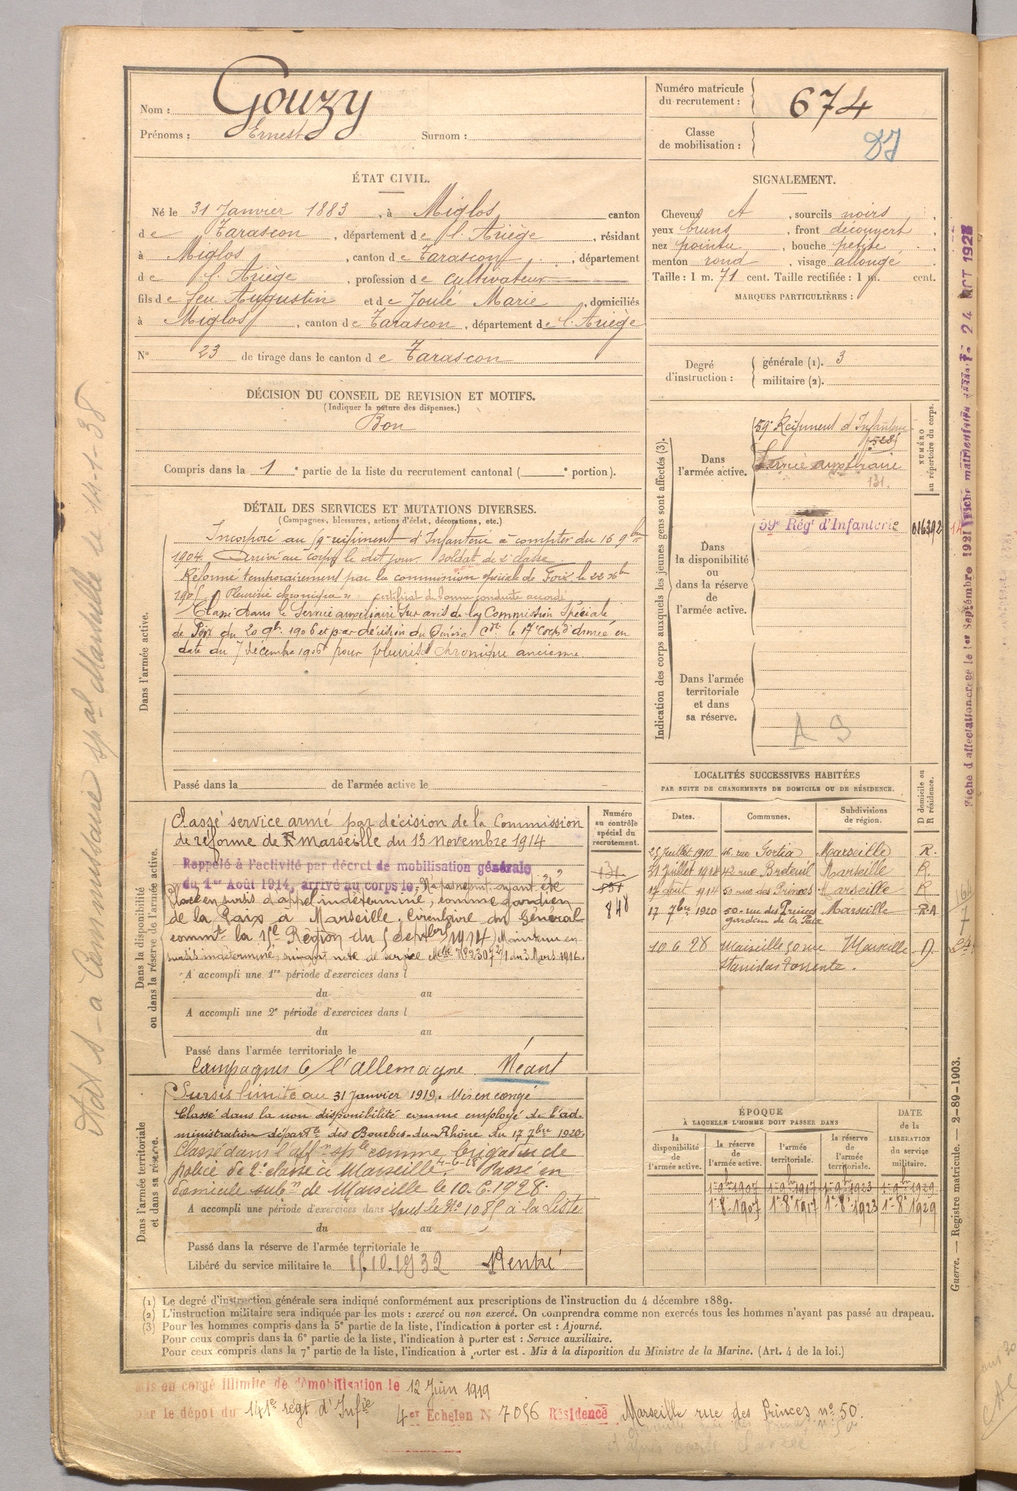 Nom : Gouzy
Prénoms : Ernest Surnom :
Numéro matricule
du recrutement : 674
Classe
de mobilisation :
ÉTAT CIVIL.
Né le 31 Janvier 1883, à Miglos canton
de Tarascon, département de l'Ariège, résidant
à Miglos, canton de Tarascon, département
de l'Ariège, profession de cultivateur
fils de feu Augustin et de Joulé Marie, domiciliés
à Miglos, canton de Tarascon, département de l'Ariège
N° 23 de tirage dans le canton de Tarascon
SIGNALEMENT.
Cheveux et, sourcils noirs,
yeux bruns, front découvert,
nez pointu, bouche petite,
menton rond, visage allongé
Taille : 1 m. 71 cent. Taille rectifiée : 1 m. cent.
MARQUES PARTICULIÈRES :
Degré
d'instruction :
générale (1). 3
militaire (2).
DÉCISION DU CONSEIL DE REVISION ET MOTIFS.
(Indiquer la nature des dispenses.)
Bon
Compris dans la 1e partie de la liste du recrutement cantonal ( e portion).
DÉTAIL DES SERVICES ET MUTATIONS DIVERSES.
(Campagnes, blessures, actions d'éclat, décorations, etc.)
Dans l'armée active.
Incorporé au 59e régiment d'Infanterie à compter du 16 9bre
1904. Arrivé au corps le dit jour. soldat de 2e classe
Réformé temporairement par la commission spéciale de Foix le 22 Xbre
certificat de bonne conduite accordé
Classé dans le Service auxiliaire sur avis de la Commission Spéciale
de Foix du 20 9bre 1906 et par décision du Général Ct le 17e Corps d'armée en
date du 7 décembre 1906 pour pleurésie chronique ancienne
Passé dans la de l'armée active le
Indication des corps auxquels les jeunes gens sont affectés (3).
NUMÉRO
au répertoire du corps.
Dans
l'armée active.
59e Régiment d'Infanterie
Service auxiliaire
131.
59e Rég' d'Infanterie 016392
Dans
la disponibilité
ou
dans la réserve
de
l'armée active.
Dans l'armée
territoriale
et dans
sa réserve.
Dans la disponibilité
ou dans la réserve de l'armée active.
Classé service armé par décision de la Commission
de réforme de Marseille du 13 novembre 1914
Rappelé à l'activité par décret de mobilisation générale
du 1er Août 1914, arrivé au corps le, N'a pas rejoint, ayant été
placé en sursis d'appel indéterminé, comme gardien
de la Paix à Marseille, Circulaire du Général
commt la 15e Région du 5 septbre 1914, Maintenu en
sursis indéterminé, suivant note de service
A accompli une 1re période d'exercices dans l
du au
A accompli une 2e période d'exercices dans l
du au
Passé dans l'armée territoriale le
Campagnes C/ l'allemagne Néant
Numéro
au contrôle
spécial du
recrutement.
131
848
LOCALITÉS SUCCESSIVES HABITÉES
PAR SUITE DE CHANGEMENTS DE DOMICILE OU DE RÉSIDENCE.
Dates. Communes. Subdivisions
de région.
D domicile ou
R résidence.
25 juillet 1910 rue Fortia Marseille R.
31 Juillet 1912 rue Breteuil Marseille R.
17 avril 1914 50 rue des Princes Marseille R
17 7bre 1920 50 rue des Princes Marseille RA
gardien de la Paix
10.6.28 Marseille 50 rue Marseille D.
Stanislas Torrents.
Dans l'armée territoriale
et dans sa réserve.
Sursis limité au 31 Janvier 1919. Mis en congé
Classé dans la non disponibilité comme employé de l'ad
ministration départle des Bouches-du-Rhône du 17 7bre 1920
Classé dans l'affon sple comme brigadier de
police de 1e classe à Marseille Passé en
domicile subn de Marseille le 10.6.1928.
A accompli une période d'exercices dans sous le N° 1085 à la Liste
du au
Passé dans la réserve de l'armée territoriale le
Libéré du service militaire le 15.10.1932
ÉPOQUE
À LAQUELLE L'HOMME DOIT PASSER DANS
la
disponibilité
de
l'armée active.
la réserve
de
l'armée active.
l'armée
territoriale.
la réserve
de
l'armée
territoriale.
DATE
de la
LIBÉRATION
du service
militaire.
1 9bre 1907 1 9bre 1917 1 9bre 1923 1 9bre 1929
1.8.1907 1.8.1917 1.8.1923 1.8.1929
(1) Le degré d'instruction générale sera indiqué conformément aux prescriptions de l'instruction du 4 décembre 1889.
(2) L'instruction militaire sera indiquée par les mots : exercé ou non exercé. On comprendra comme non exercés tous les hommes n'ayant pas passé au drapeau.
(3) Pour les hommes compris dans la 5e partie de la liste, l'indication à porter est : Ajourné.
Pour ceux compris dans la 6e partie de la liste, l'indication à porter est : Service auxiliaire.
Pour ceux compris dans la 7e partie de la liste, l'indication à porter est : Mis à la disposition du Ministre de la Marine. (Art. 4 de la loi.)
Mis en congé illimité de démobilisation le 12 Juin 1919
par le dépôt du 141e régt d'Infie 4er Échelon N 7056 Résidence Marseille rue des Princes n° 50.
Commissaire spal Marseille le 14-1-38
Guerre. — Registre matricule. — 2-89-1903.